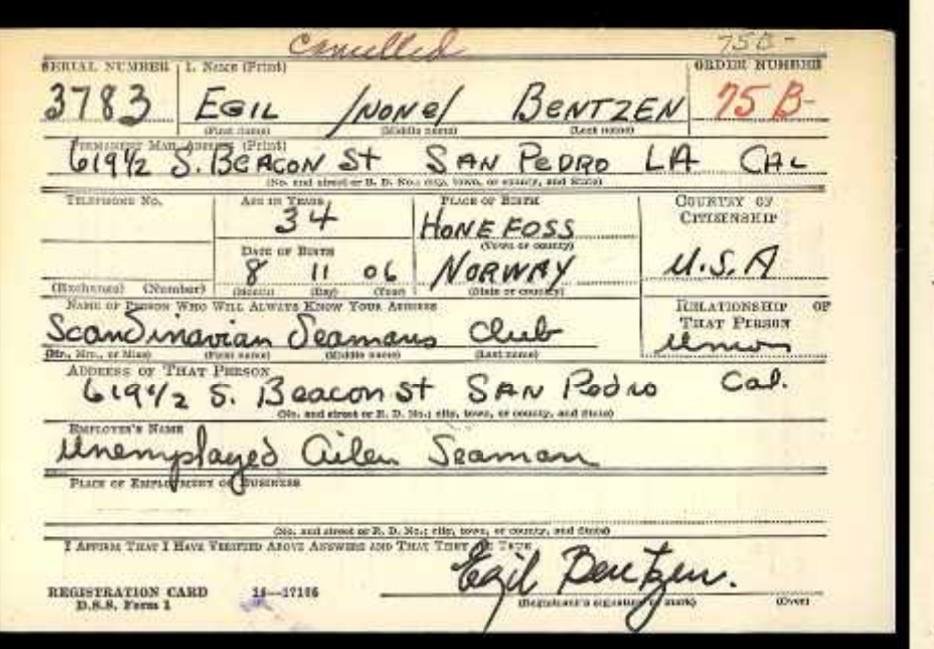 Cancelled 75B-
SERIAL NUMBER 1. NAME (Print) ORDER NUMBER
3783 EGIL /NONE/ BENTZEN 75 B-
(First name) (Middle name) (Last name)
PERMANENT MAIL ADDRESS (Print)
619 1/2 S. BEACON St SAN PEDRO LA CAL
(No. and street or R. D. No.; city, town, or county, and State)
TELEPHONE NO. AGE IN YEARS PLACE OF BIRTH COUNTRY OF
34 HONEFOSS CITIZENSHIP
DATE OF BIRTH (Town or county)
8 11 06 NORWAY U.S.A
(Exchange) (Number) (Month) (Day) (Year) (State or country)
NAME OF PERSON WHO WILL ALWAYS KNOW YOUR ADDRESS RELATIONSHIP OF
Scandinavian Seamans Club THAT PERSON
(Mr., Mrs., or Miss) (First name) (Middle name) (Last name) Union
ADDRESS OF THAT PERSON
619 1/2 S. Beacon St SAN Pedro Cal.
(No. and street or R. D. No.; city, town, or county, and State)
EMPLOYER'S NAME
Unemployed Ailen Seaman
PLACE OF EMPLOYMENT OR BUSINESS
(No. and street or R. D. No.; city, town, or county, and State)
I AFFIRM THAT I HAVE VERIFIED ABOVE ANSWERS AND THAT THEY ARE TRUE
Egil Bentzen.
REGISTRATION CARD 16—17106 (Registrant's signature or mark) (Over)
D.S.S. Form 1